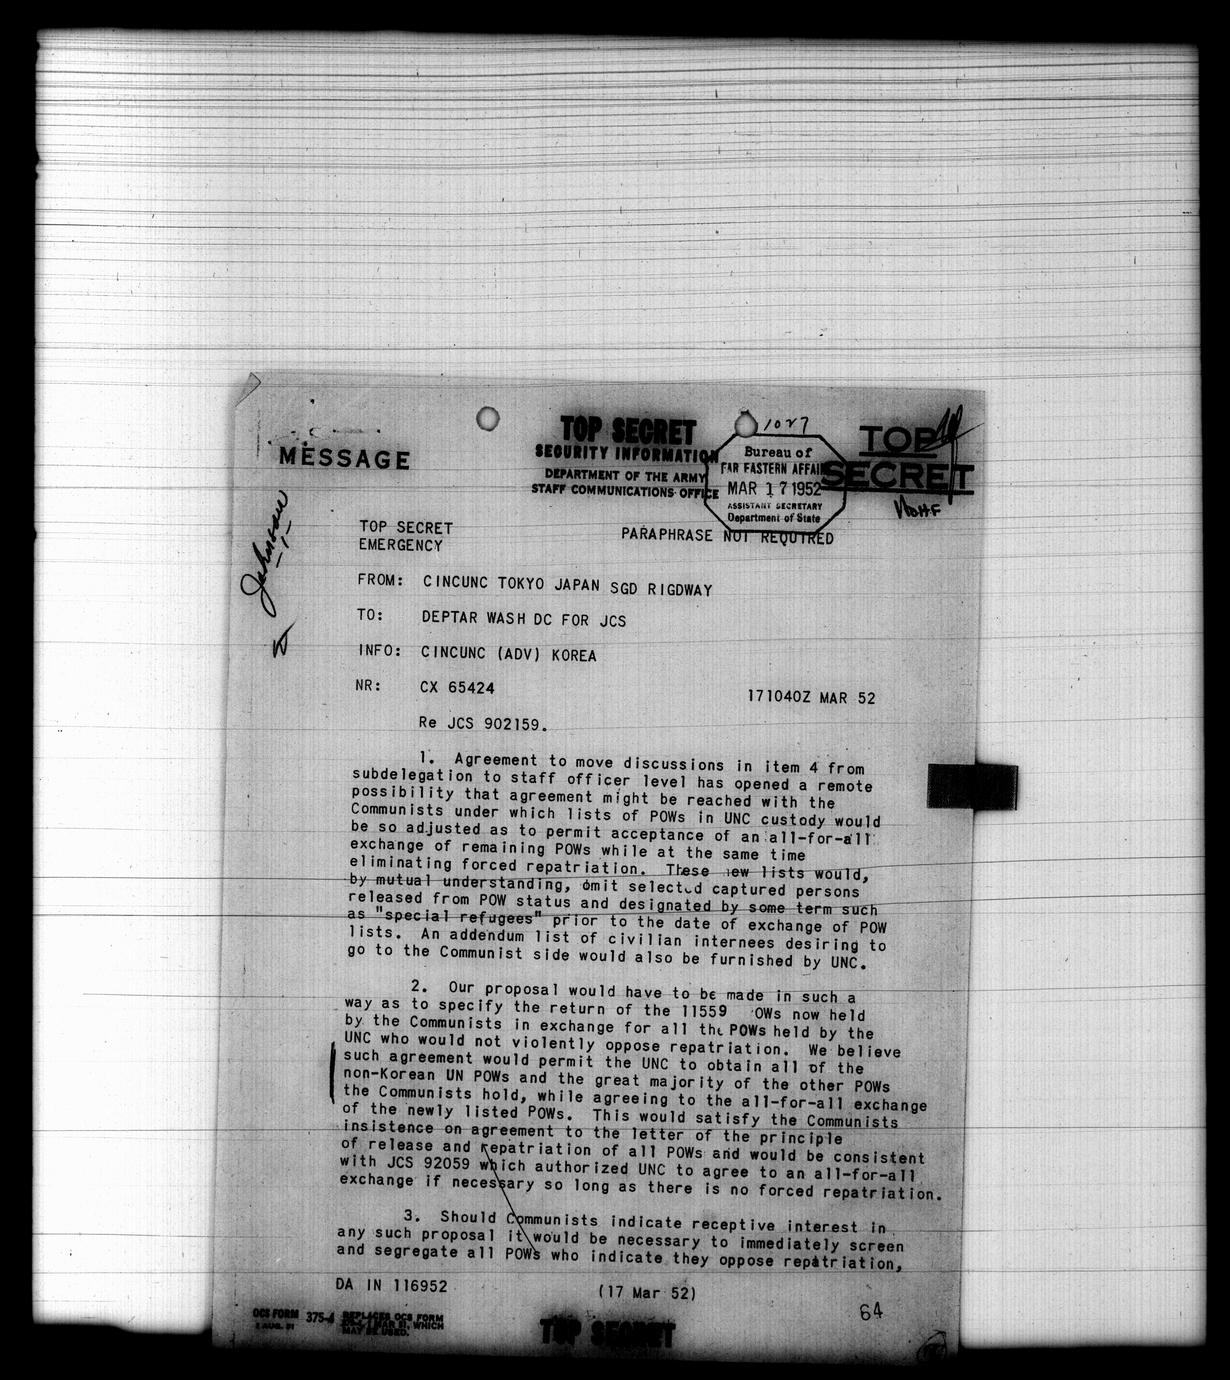 1027
TOP SECRET
SECURITY INFORMATION
DEPARTMENT OF THE ARMY
STAFF COMMUNICATIONS OFFICE
Bureau of
FAR EASTERN AFFAIR
MAR 17 1952
ASSISTANT SECRETARY
Department of State
TOP
SECRET
MESSAGE
Johnson
TOP SECRET
EMERGENCY
PARAPHRASE NOT REQUIRED
FROM: CINCUNC TOKYO JAPAN SGD RIGDWAY
TO: DEPTAR WASH DC FOR JCS
INFO: CINCUNC (ADV) KOREA
NR: CX 65424 171040Z MAR 52
Re JCS 902159.
1. Agreement to move discussions in item 4 from
subdelegation to staff officer level has opened a remote
possibility that agreement might be reached with the
Communists under which lists of POWs in UNC custody would
be so adjusted as to permit acceptance of an all-for-all
exchange of remaining POWs while at the same time
eliminating forced repatriation. These ew lists would,
by mutual understanding, omit selected captured persons
released from POW status and designated by some term such
as "special refugees" prior to the date of exchange of POW
lists. An addendum list of civilian internees desiring to
go to the Communist side would also be furnished by UNC.
2. Our proposal would have to be made in such a
way as to specify the return of the 11559 OWs now held
by the Communists in exchange for all the POWs held by the
UNC who would not violently oppose repatriation. We believe
such agreement would permit the UNC to obtain all of the
non-Korean UN POWs and the great majority of the other POWs
the Communists hold, while agreeing to the all-for-all exchange
of the newly listed POWs. This would satisfy the Communists
insistence on agreement to the letter of the principle
of release and repatriation of all POWs and would be consistent
with JCS 92059 which authorized UNC to agree to an all-for-all
exchange if necessary so long as there is no forced repatriation.
3. Should Communists indicate receptive interest in
any such proposal it would be necessary to immediately screen
and segregate all POWs who indicate they oppose repatriation,
DA IN 116952 (17 Mar 52)
64
OCS FORM 375-4 REPLACES OCS FORM
2 AUG. 51 375-4, 1 MAR 51, WHICH
MAY BE USED.
TOP SECRET